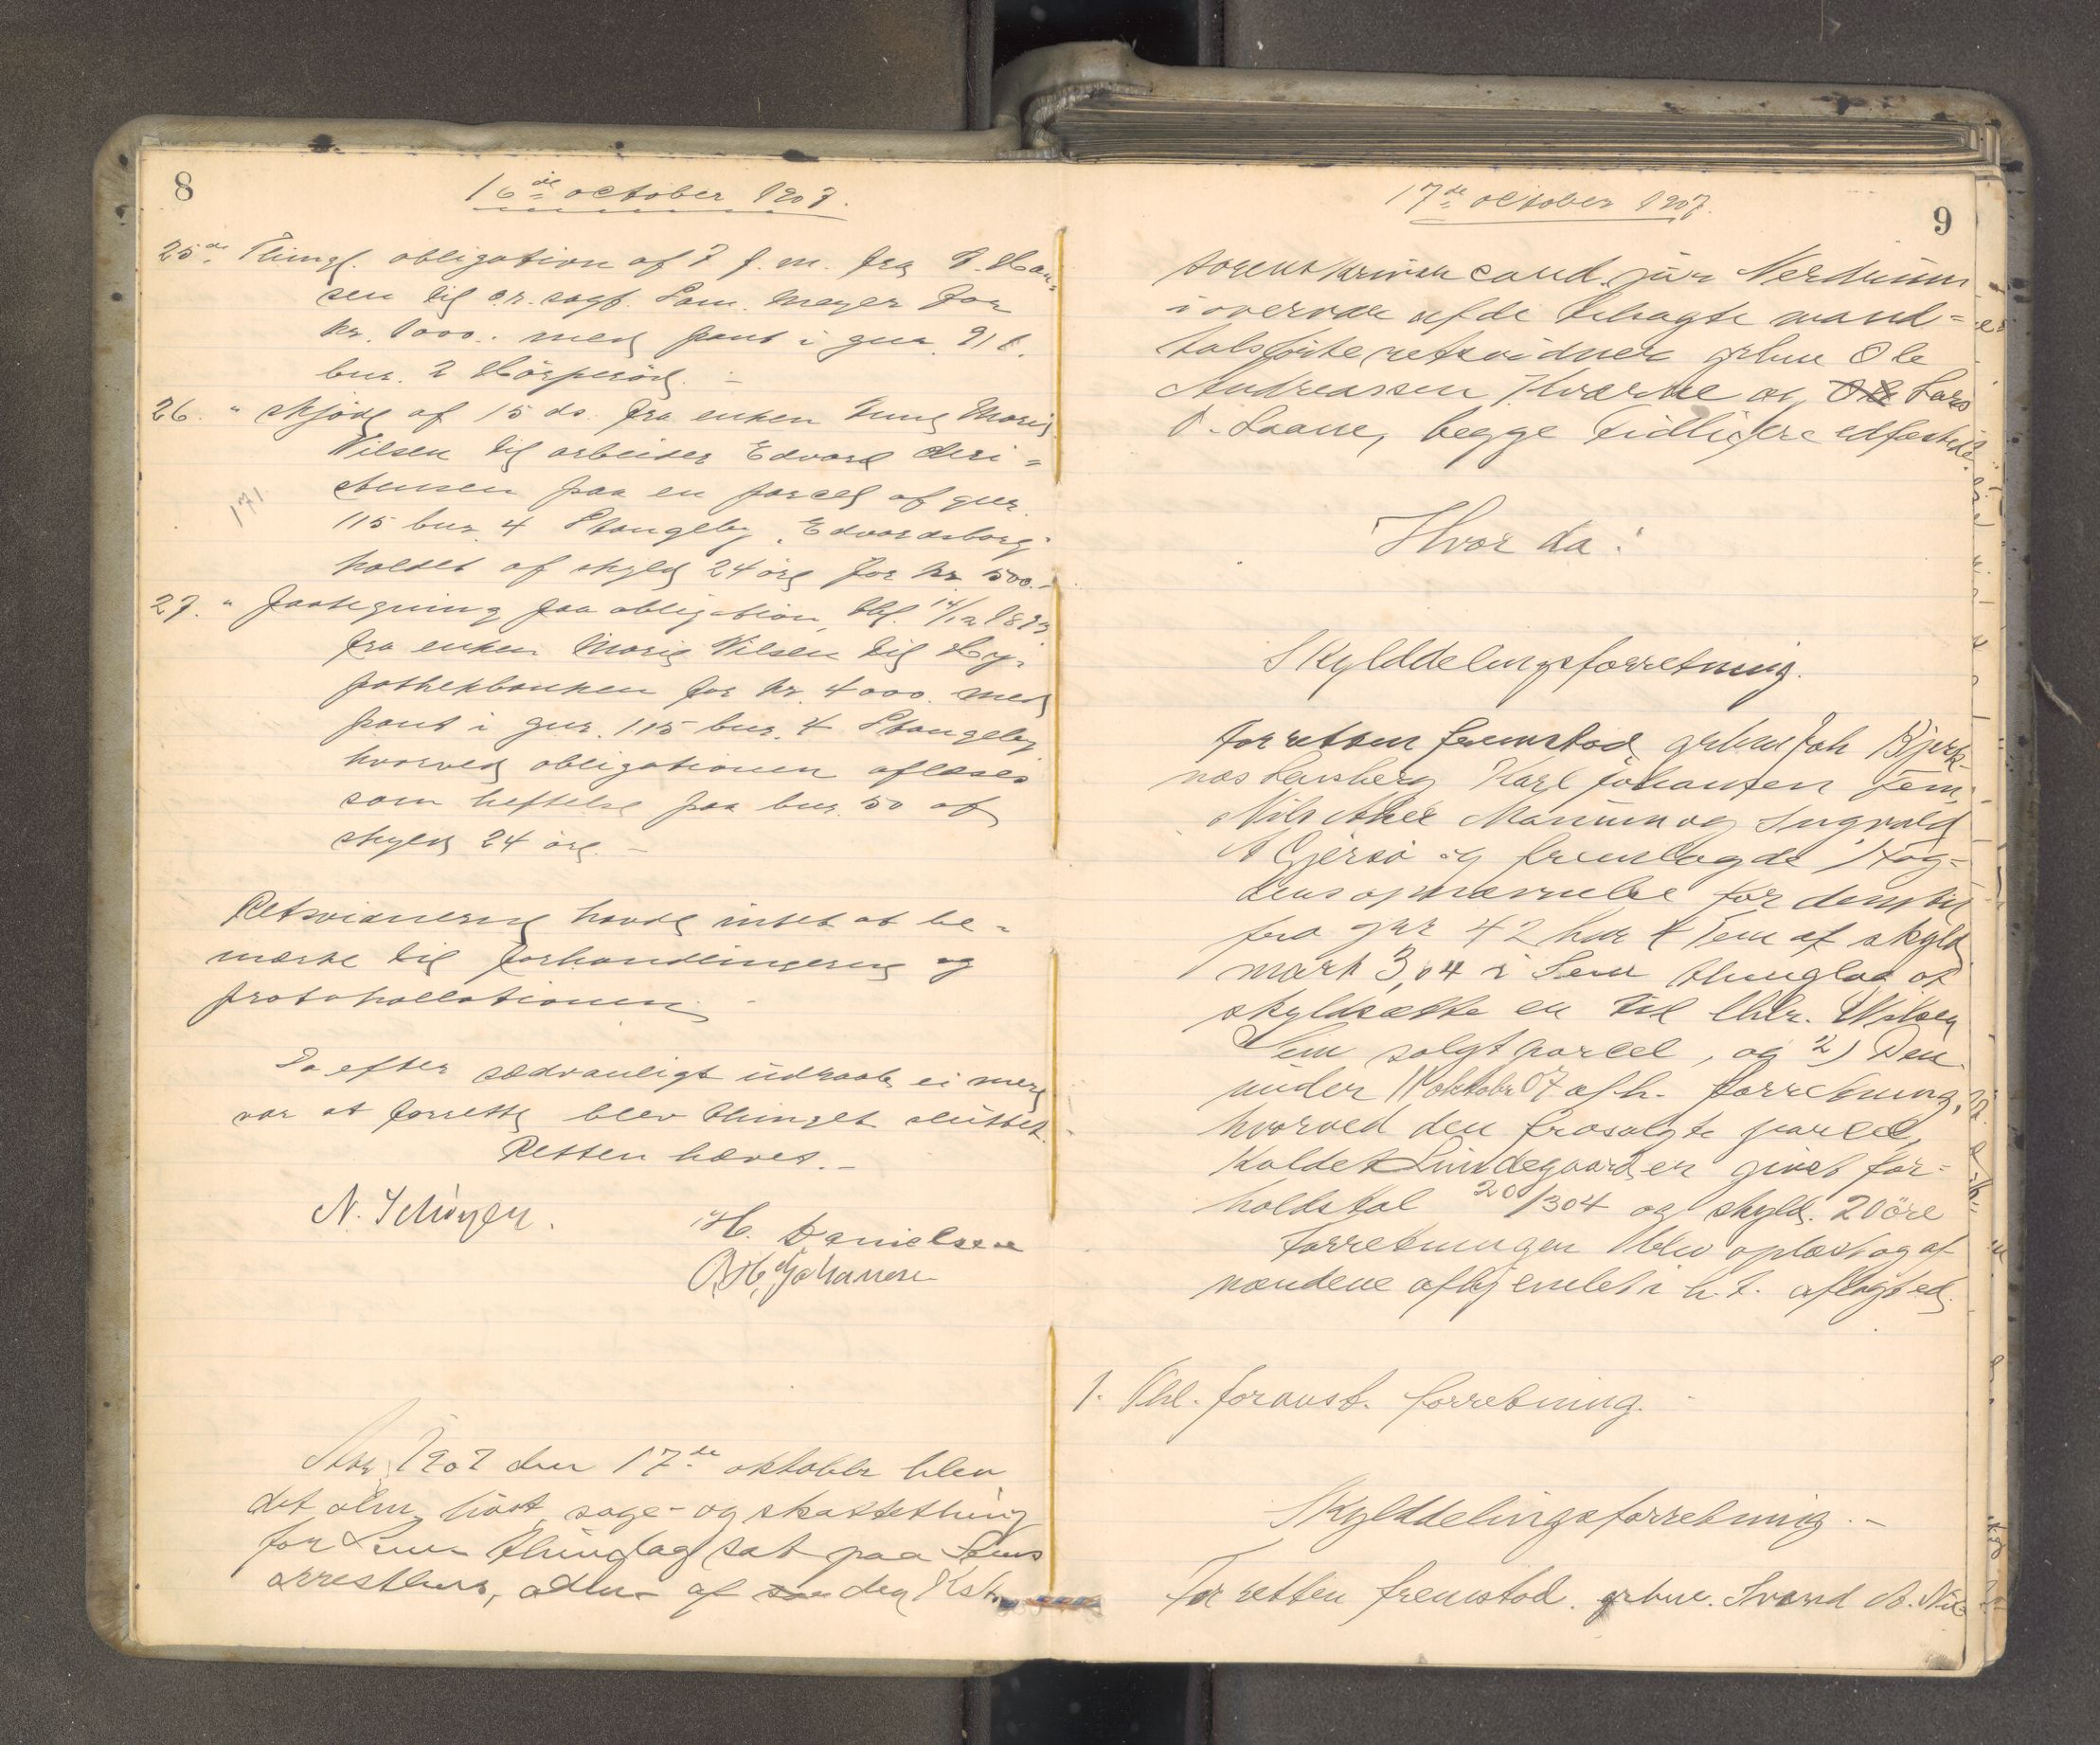 8
16de october 1907.
25de Thingl. obligation af 7 f. m. fra P. Han-
sen til o.r. sagf. Sam. Meyer for
kr. 1000.: med pant i gnr. 91
bnr. 2
26. " skjøde af 15 ds. fra enken Marie
Nilsen til arbeider Edvard Chri=
stensen paa en parcel af gnr.
171
115 bnr. 4 Stangeby, "Edvardsborg"
kaldet af skyld 24 øre for kr. 500.-
27. " paategning paa obligation, thl. 14/12
fra enken Marie Nilsen til Hy-
pothekbanken for kr. 4000. med
pant i gnr. 115 bnr. 4 Stangeby
hvorved obligationen aflæses
som heftelse paa bnr. 50 af
skyld 24 øre. -
Retsvidnerne havde intet at be-
mærke til forhandlingerne og
protokollationen. -
Da efter sædvanligt udraab ei mere
var at forrette blev thinget sluttet.
Retten hævet. -
N. Schøyen.
H. Danielsen
O. H. Johansen
Aar 1907 den 17de oktober blev
det alm. høst, sage- og skattething
for Sem thinglag sat paa Sems
arresthus, adm. af den Kst.
17de oktober 1907.
9
sorenskriver cand. jur Nerdrum
i overvær af de tilsagte mand=
talsførte retsvidner grbr Ole
Andreassen og Lars
O. Laane, begge tidligere edfæstede.
Hvor da:
Skylddelingsforretning.
For retten fremstod grbrne Joh Bjerk-
næs Karl Johansen Fem,
Nils Aker og Ingvald
A Gjersø og fremlagde 1) Fog=
dens opnævnelse for dem til
fra gnr 42 bnr 4 Tem af skyld
mark 3,04 i Sem thinglag at
skyldsætte en til Chr. Nilsen
Sem solgt parcel, og 2) Den
under 11 oktober 07 afh. forretning,
hvorved den frasolgte parcel,
kaldet Lindegaard er givet for=
holdstal 20/304 og skyld. 20 øre
Forretningen blev oplæst og af
mændene afhjemlet i h. t. aflagt ed.
1. Thl. foranst. forretning. -
Skylddelingsforretning. -
For retten fremstod. grbrne. Svend A.